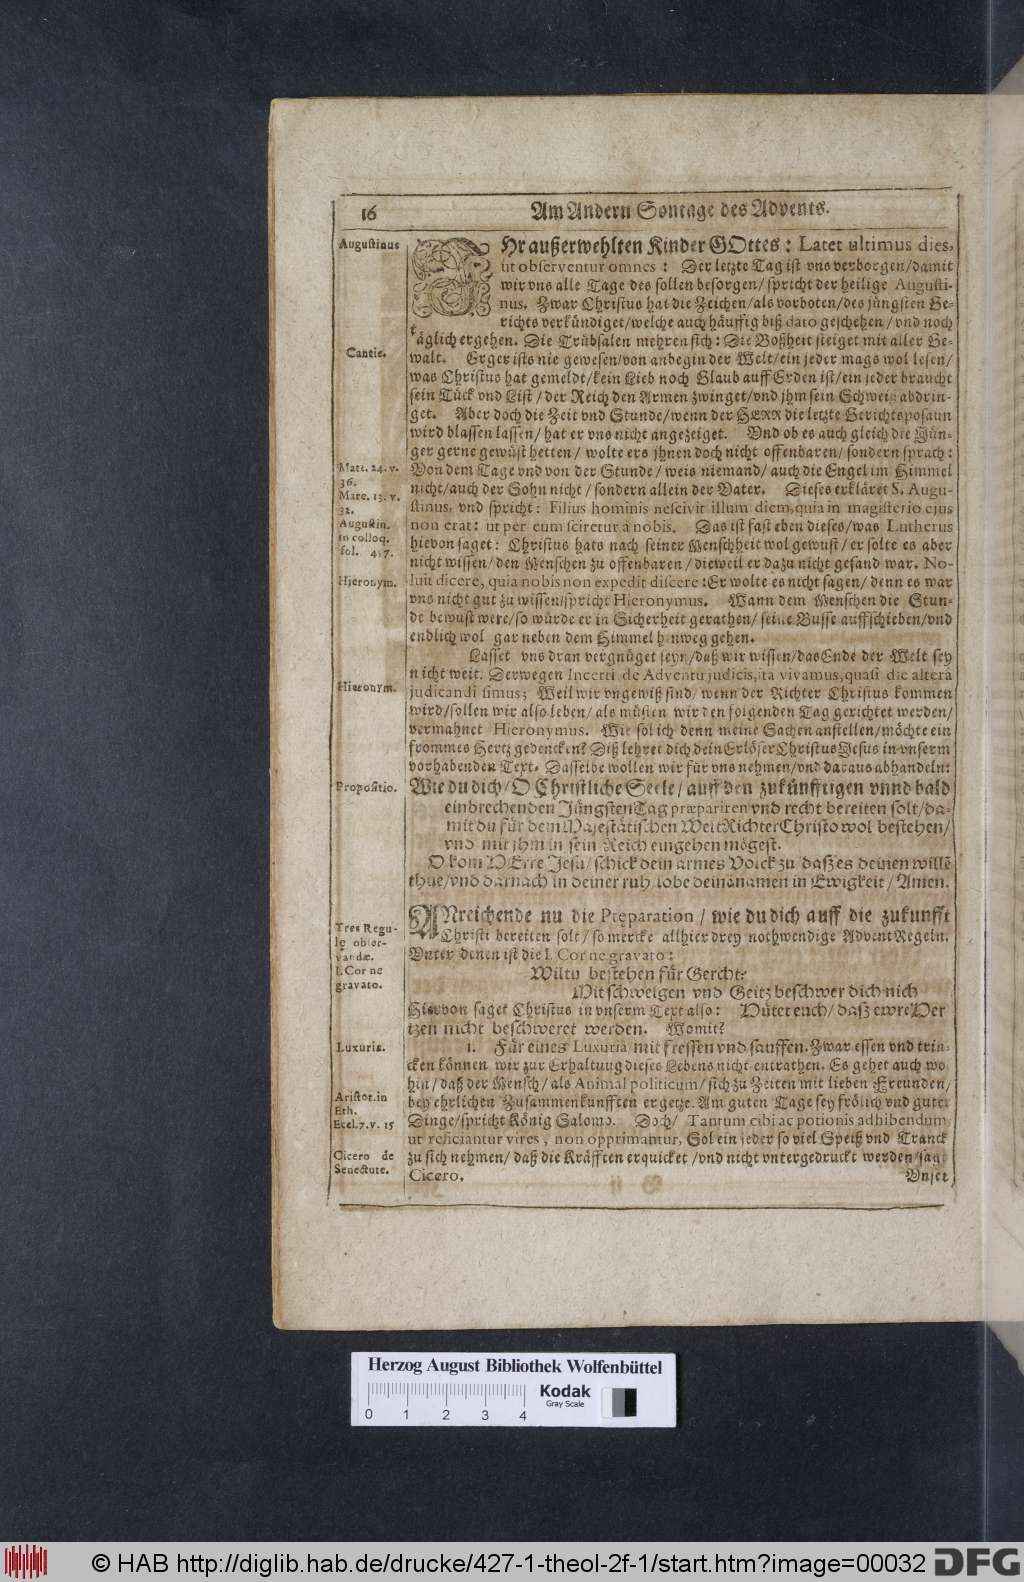 16
Am Andern Sontage des Advents.
Augustinus
IHr außerwehlten Kinder GOttes: Latet ultimus dies,
ut observentur omnes: Der letzte Tag ist vns verborgen/damit
wir vns alle Tage des sollen besorgen/ spricht der heilige Augusti-
nus. Zwar Christus hat die Zeichen/als vorboten/des jüngsten Ge-
richts verkündiget/welche auch häuffig biß dato geschehen/vnd noch
täglich ergehen. Die Trübsalen mehren sich: Die Boßheit steiget mit aller Ge-
Cantic.
walt. Erger ists nie gewesen/von anbegin der Welt/ein jeder mags wol lesen/
was Christus hat gemeldt/kein Lieb noch Glaub auff Erden ist/ein jeder braucht
sein Tück vnd List/der Reich den Armen zwinget/vnd jhm sein Schweiß abdrin-
get. Aber doch die Zeit vnd Stunde/wenn der HERR die letzte Gerichtsposaun
wird blassen lassen/ hat er vns nicht angezeiget. Vnd ob es auch gleich die Jün-
ger gerne gewüst hetten/ wolte ers jhnen doch nicht offenbaren/ sondern sprach:
Matt. 24. v.
36.
Marc. 13. v.
32.
Von dem Tage vnd von der Stunde/ weis niemand/ auch die Engel im Himmel
nicht/auch der Sohn nicht/sondern allein der Vater. Dieses erkläret S. Augu-
stinus, vnd spricht: Filius hominis nescivit illum diem, quia in magisterio ejus
Augustin.
in colloq.
fol. 457.
non erat: ut per eum sciretur à nobis. Das ist fast eben dieses/was Lutherus
hievon saget: Christus hats nach seiner Menschheit wol gewust/er solte es aber
nicht wissen/den Menschen zu offenbaren/dieweil er dazu nicht gesand war. No-
Hieronym.
luit dicere, quia nobis non expedit discere: Er wolte es nicht sagen/ denn es war
vns nicht gut zu wissen/spricht Hieronymus. Wann dem Menschen die Stun-
de bewust were/so würde er in Sicherheit gerathen/ seine Busse auffschieben/vnd
endlich wol gar neben dem Himmel hinweg gehen.
Lasset vns dran vergnüget seyn/daß wir wissen/das Ende der Welt sey
nicht weit. Derwegen Incerti de Adventu judicis, ita vivamus, quasi die alterâ
Hieronym.
judicandi simus; Weil wir vngewiß sind/ wenn der Richter Christus kommen
wird/sollen wir also leben/ als müsten wir den folgenden Tag gerichtet werden/
vermahnet Hieronymus. Wie sol ich denn meine Sachen anstellen/möchte ein
frommes Hertz gedencken? Diß lehret dich dein Erlöser Christus Jesus in vnserm
vorhabenden Text. Dasselbe wollen wir für vns nehmen/vnd daraus abhandeln:
Propositio.
Wie du dich/ O Christliche Seele/ auff den zukünfftigen vnnd bald
einbrechenden Jüngsten Tag præpariren vnd recht bereiten solt/da-
mit du für dem Majestätischen WeltRichter Christo wol bestehen/
vnd mit jhm in sein Reich eingehen mögest.
O kom HErre Jesu/ schick dein armes Volck zu/ daß es deinen willē
thue/vnd darnach in deiner ruh/ lobe deinē namen in Ewigkeit/ Amen.
Tres Regu-
lę obser-
vandæ.
ANreichende nu die Pręparation/ wie du dich auff die zukunfft
Christi bereiten solt/ so mercke allhier drey nothwendige Advent Regeln.
Vnter denen ist die I. Cor ne gravato:
I. Cor ne
gravato.
Wiltu bestehen für Gericht:
Mit schwelgen vnd Geitz beschwer dich nich
Hiervon saget Christus in vnserm Text also: Hütet euch/ daß ewre Her
tzen nicht beschweret werden. Womit?
Luxuriæ.
1. Für eines Luxuria mit fressen vnd sauffen. Zwar essen vnd trin-
cken können wir zur Erhaltuug dieses Lebens nicht entrathen. Es gehet auch wo
hin/ daß der Mensch/ als Animal politicum/ sich zu Zeiten mit lieben Freunden/
Aristot. in
Eth.
Eccl. 7. v. 15
bey ehrlichen Zusammenkunfften ergetze. Am guten Tage sey frölich vnd guter
Dinge/spricht König Salomo. Doch/ Tantum cibi ac potionis adhibendum
ut reficiantur vires, non opprimantur, Sol ein jeder so viel Speiß vnd Tranck
Cicero de
Senectute.
zu sich nehmen/ daß die Kräfften erquicket/vnd nicht vntergedruckt werden/sagt
Cicero.
Vnser
Herzog August Bibliothek Wolfenbüttel
0 1 2 3 4
Kodak
Gray Scale
© HAB http://diglib.hab.de/drucke/427-1-theol-2f-1/start.htm?image=00032
DFG